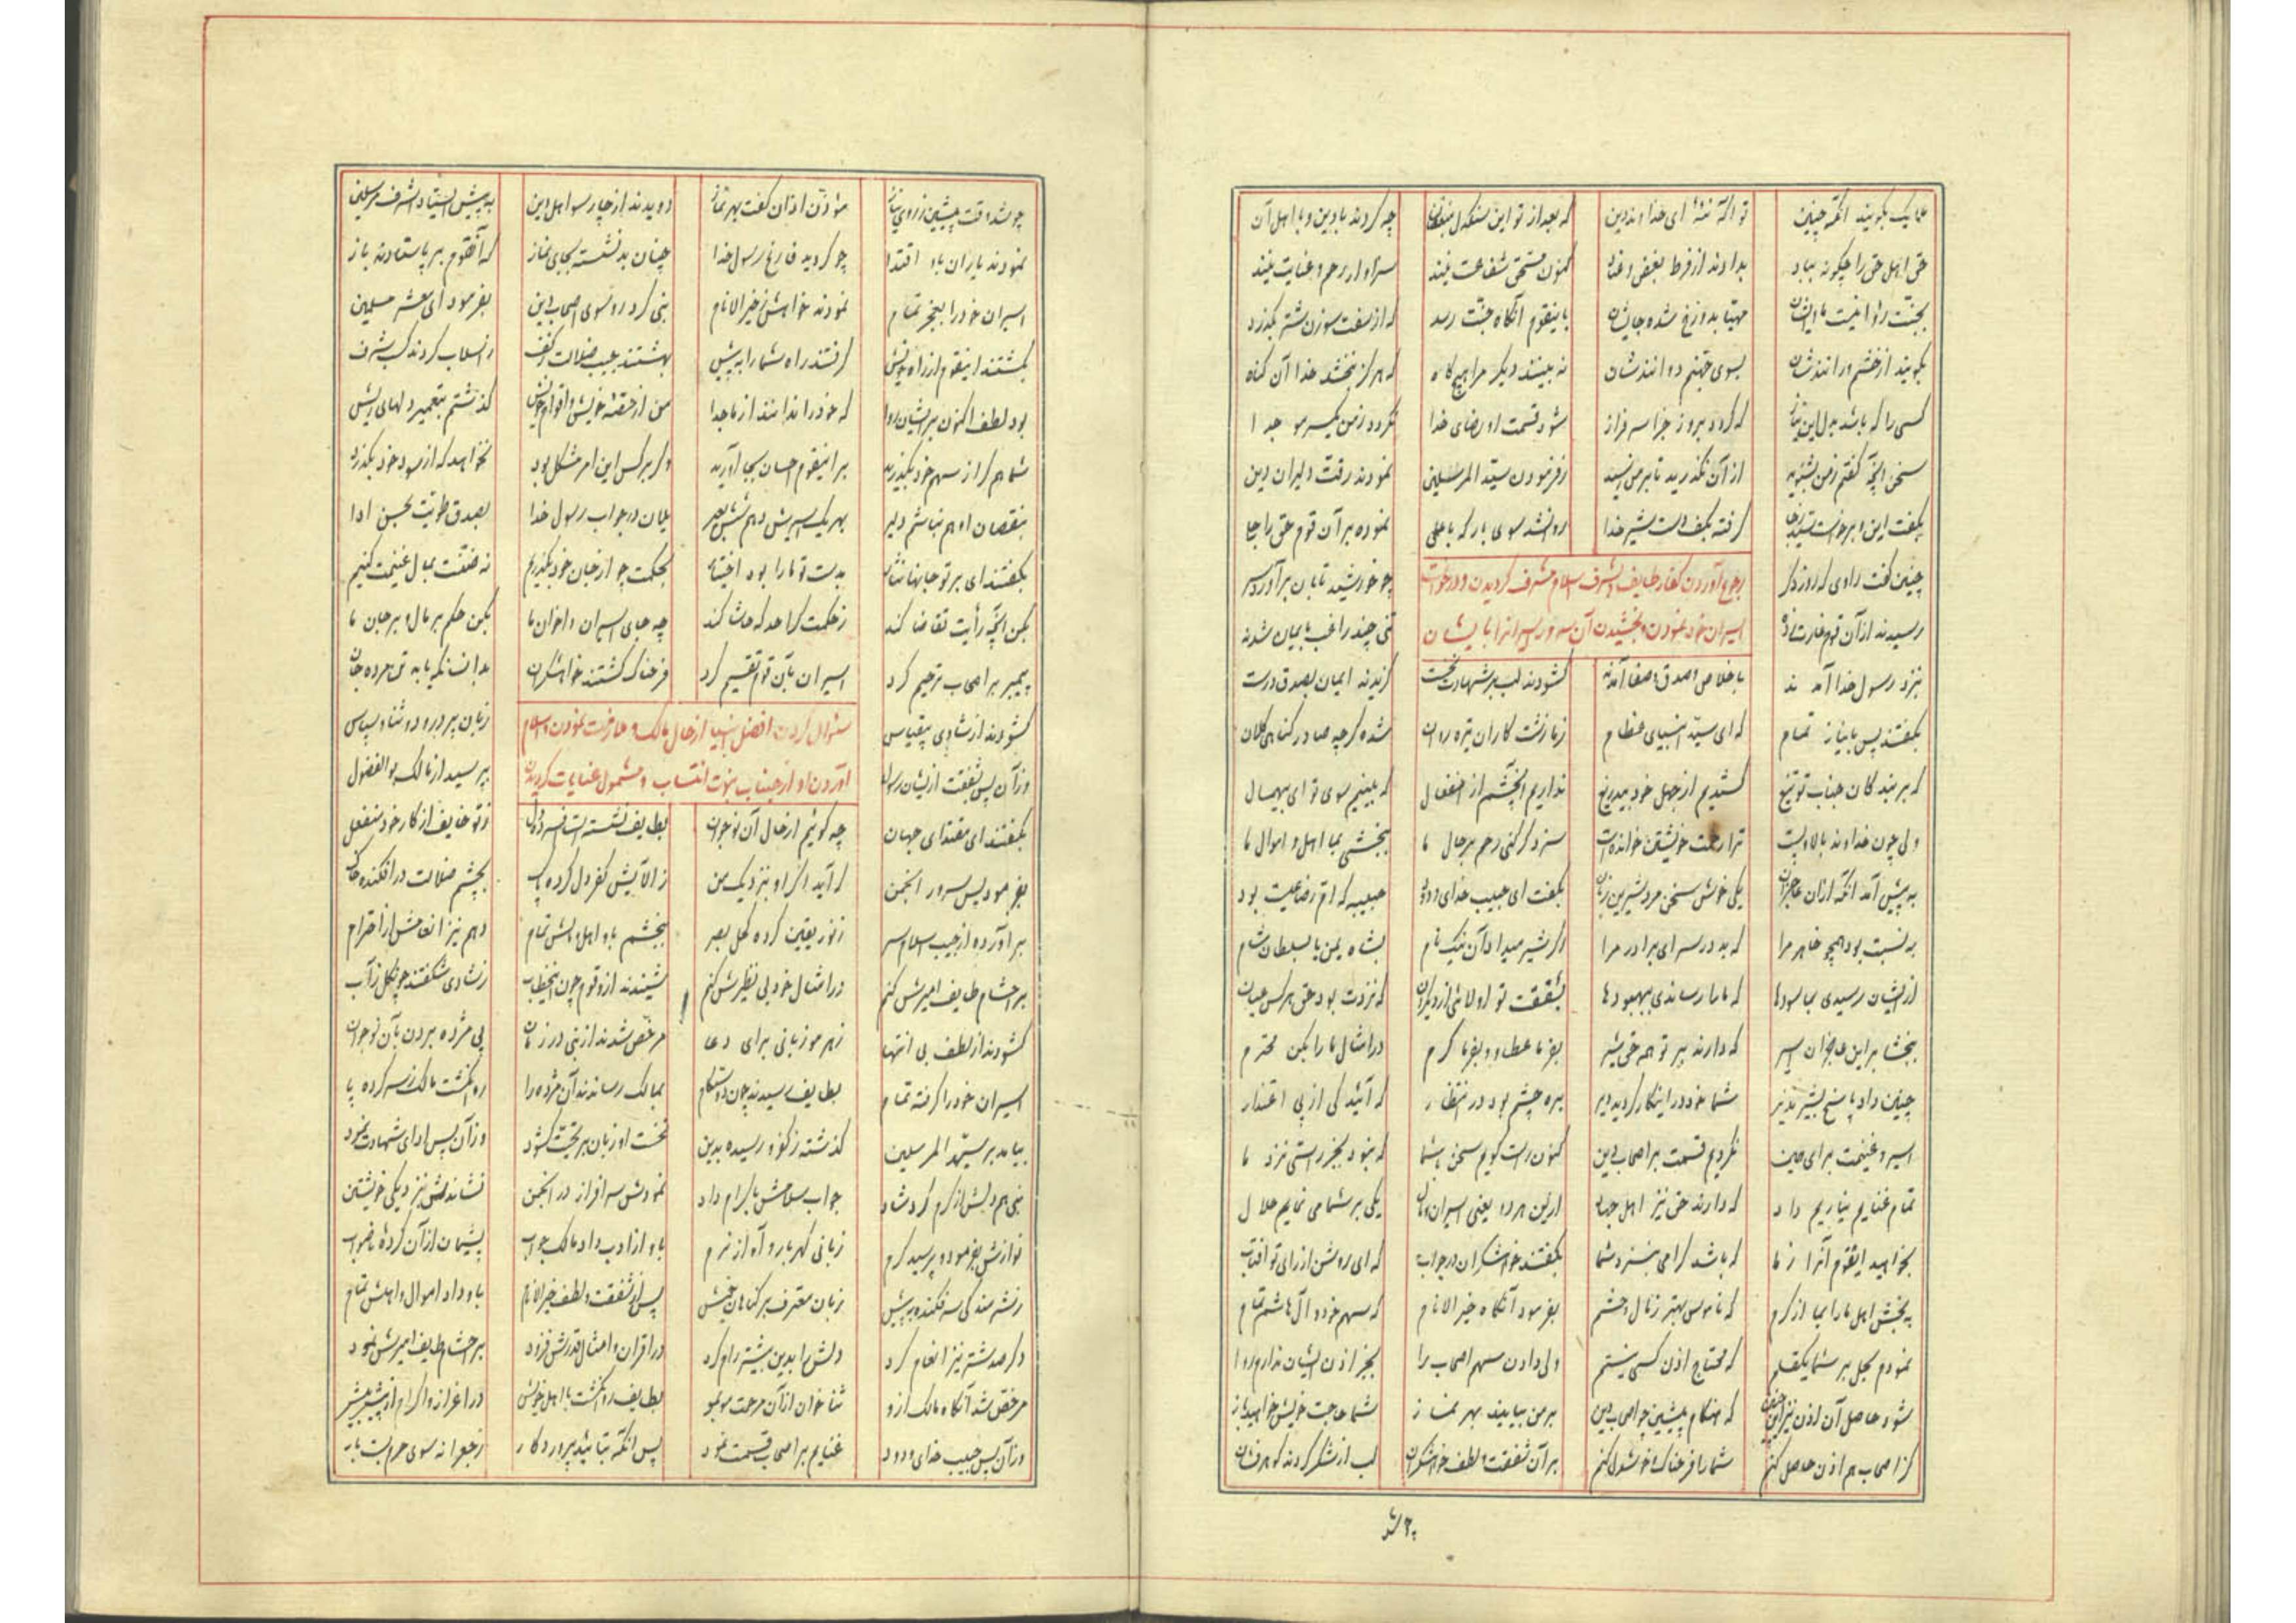 ملایک بگویند انگه چنین تو آگه نئی ای خداوند دین که بعد از تو این سنگدل چه کردند با دین و با اهل آن
حق اهل حق را چگونه بداند از فرط بغض و عناد کنون مستحق شفاعت نیند سزاوار رحم و عنایت نیند
بجنت روا نیست مهیا بدوزخ شده جایشان باینقوم آنگاه جنت رسد که از سفت سوزن شتر بگذرد
بگویند از خشم و رانندشان بسوی جهنم دوانندشان نه بینند دیگر مرا هیچگاه که هرگز نبخشد خدا آن گناه
کسی را که باشد بدل این نیاز که گردد بروز جزا سرفراز شود قسمت او رضای خدا نگردد ز من یکسر مو جدا
سخن آنچه گفتم ز من بشنوید از آن نگذرید تا بر من رسید ز فرمودن سید المرسلین نمودند رقت دلیران دین
بگفت این و برخاست گرفته بکف دست شیر خدا روانشد سوی بارگه با علی نموده بر آن قوم حق را جلی
چنین گفت راوی که روز دگر رجوع آوردن کفار طایف بشرف اسلام مشرف گردیدن و درخواست چو خورشید تابان برآورد سر
رسیدند از آن قوم اسیران خود نمودن و بخشیدن آن سرور اسیرانرا بایشان تنی چند راغب بایمان شدند
بنزد رسول خدا آمدند باخلاص و صدق و صفا آمدند گشودند لب بر شهادت نخست گزیدند ایمان بصدق درست
بگفتند پس با نیاز تمام که ای سید انبیای عظام ز ما زشت کاران تیره روان شده گرچه صادر گناهی کلان
که بر بندگان جناب تو تیغ کشدیم از جهل خود بیدریغ نداریم آنچشم از انفعال که بینیم سوی تو ای بیهمال
ولی چون خداوند بالا و پست ترا رحمت خویشتن خوانده است سزد گر کنی رحم بر حال ما ببخشی بما اهل و اموال ما
به پیش آمد آنگه از آن یکی خوش سخن مرد شیرین زبان بگفت ای حبیب خدای ودود حبیبه که ام رضاعیت بود
به نسبت بود همچو خاهر مرا که بد در سرای برادر مرا اگر شیر میداد آن نیک نام بشاه یمن یا بسلطان شام
از ایشان رسیدی بما سودها که ما را رساندی ببهبودها بشفقت تو اولائی از دیگران که نزدت بود حق هر کس عیان
ببخشا بر این عاجزان اسیر که دارند بر تو همه حق شیر بفرما عطا و بفرما کرم در امثال ما را بکن محترم
چنین داد پاسخ بشیر نذیر شما خود در اینکار کردید دیر بره چشم بود در انتظار که آئید کی از پی اعتذار
اسیر و غنیمت برای همین نکردیم قسمت بر اصحاب دین کنون راست گویم سخن با شما که نبود بجز راستی نزد ما
تمام غنایم نیاریم داد که دارند حق نیز اهل جهاد از این هر دو یعنی اسیران و مال یکی بر شما می نمایم حلال
بخواهید ایقوم آنرا ز ما که باشد گرامی بنزد شما بگفتند خواهشگران در جواب که ای روشن از رای تو آفتاب
ببخش اهل ما را بما از کرم که ناموس بهتر ز مال و حشم بفرمود آنگاه خیر الانام که سهم خود و آل هاشم تمام
نمودم بحل بر شما یکقلم که محتاج اذن کسی نیستم ولی دادن سهم اصحاب را بجز اذن ایشان ندارم روا
شود حاصل آن اذن نیز که هنگام پیشین چو اصحاب دین بر من بیایند بهر نماز شما حاجت خویش خواهید باز
کز اصحاب هم اذن حاصل کنم شما را فرحناک و خوشدل کنم بر آن شفقت و لطف خواهشگران لب از شکر کردند گوهرفشان
چو شد وقت پیشین ز روی نیاز مؤذن اذان گفت بهر نماز دویدند از جا رسوا اهل دین به پیش ایستاد اشرف مرسلین
نمودند یاران باو اقتدا چو گردید فارغ رسول خدا چنان بد نشسته بجای نماز که آنقوم بر پا ستادند باز
اسیران خود را بعجز تمام نمودند خواهش ز خیر الانام نبی کرد رو سوی اصحاب دین بفرمود ای معشر مسلمین
بگشتند اینقوم از راه خویش گرفتند راه شما را به پیش بهشتند جیب ضلالت ز کف بر اسلاب کردند کسب شرف
بود لطف اکنون بر ایشان روا که خود را ندانند از ما جدا من از حصه خویش و اقوام خویش گذشتم بتعمیر دلهای ریش
شما هم گر از سهم خود بگذرید بر اینقوم احسان بجا آورید و گر بر کس این امر مشکل بود نخواهد که از سود خود بگذرد
بنقصان او هم نباشم دلیر بهر یک اسیرش دهم شش بعیر یلان در جواب رسول خدا بصدق طویت بحسن ادا
بگفتند ای بر تو جانها نثار بدست تو ما را بود اختیار بحکمت چو از جان خود بگذریم نه ضنت بمال غنیمت کنیم
بکن آنچه رأیت تقاضا کند ز حکمت کرا حد که حاشا کند چه جای اسیران و اخوان ما بکن حکم بر مال و بر جان ما
پیمبر بر اصحاب ترحیم کرد اسیران بآن قوم تقسیم کرد فرحناک گشتند خواهشگران بدانسانکه یابد تن مرده جان
گشودند از شادی بیقیاس سئوال کردن افضل انبیا از حال مالک و عازم نمودن و اسلام زبان پر درود و ثنا و سپاس
وز آن پس بشفقت از ایشان رسول آوردن او از جناب نبوت انتساب و مشمول عنایات گردیدن بپرسید از مالک بوالفضول
بگفتند ای مقتدای جهان چه گوئیم از حال آن نوجوان بطایف نشسته است افسرده دل ز تو خایف از کار خود منفعل
بفرمود پس سرور انجمن گر آید اگر او بنزدیک من ز آلایش کفر دل کرده پاک بچشم ضلالت در افکنده خاک
برآورده از جیب اسلام سر ز نور یقین کرده کحل بصر ببخشم باو اهل و مالش تمام دهم نیز انعامش از احترام
بر احشام طایف امیرش کنم در امثال خود بی نظیرش کنم شنیدند از و قوم چون اینخطاب ز شادی شکفتند چو گل ز آب
گشودند از لطف بی انتها ز هر مو زبانی برای دعا مرخص شدند از نبی در زمان پی مژده بردن بآن نوجوان
اسیران خود را گرفته تمام بطایف رسیدند چون دوستکام بمالک رساندند آن مژده را روان گشت مالک ز سر کرده پا
بیامد بر سید المرسلین گذشته ز کفر و رسیده بدین نخست او زبان بر تحیت گشود وز آن پس ادای شهادت نمود
نبی هم دلش از کرم کرد شاد جواب سلامش باکرام داد نمودش سرافراز در انجمن نشاندش بنزدیکی خویشتن
نوازش بفرمود و پرسید گرم زبانی گهربار و آواز نرم باو از ادب داد مالک جواب پشیمان از آن کرده ناصواب
ز شرمندگی سر فکنده به پیش زبان معترف بر گناهان خویش پس از شفقت و لطف خیر الانام باو داد اموال و اهلش تمام
دگر صد شتر نیز انعام کرد دلش را بدین بیشتر رام کرد در اقران و امثال قدرش فزود بر احشام طایف امیرش نمود
مرخص شد آنگاه مالک از و ثنا خوان از آن مرحمت موبمو بطایف روان گشت با اهل خویش در اعزاز و اکرام از پیش بیش
وز آن پس حبیب خدای ودود غنایم بر اصحاب قسمت نمود پس آنگه بتائید پروردگار ز جعرانه سوی حرم بست بار